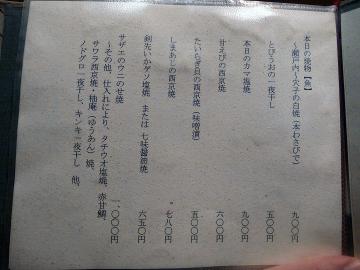 本日の焼物【魚】
～瀬戸内～穴子の白焼（本わさびで） 九〇〇円
とびうおの一夜干し 五〇〇円
本日のカマ塩焼 九〇〇円
甘えびの西京焼 六〇〇円
たいらぎ貝の西京焼（味噌漬） 五〇〇円
しまあじの西京焼 七八〇円
剣先いかゲソ塩焼 または 七味醤油焼 六五〇円
サザエのウニのせ焼 一、〇〇〇円
～その他、仕入れにより、タチウオ塩焼、赤甘鯛、
サワラ西京焼・柚庵（ゆうあん）焼、
ノドグロ一夜干し、キンキ一夜干し 他。